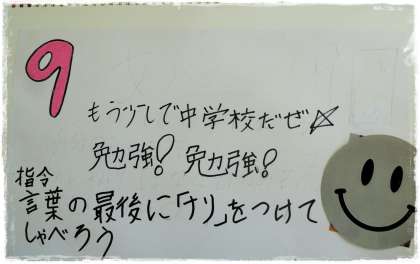 9
もう少しで中学校だぜ☆
勉強! 勉強!
指令
言葉の最後に「ナリ」をつけて
しゃべろう